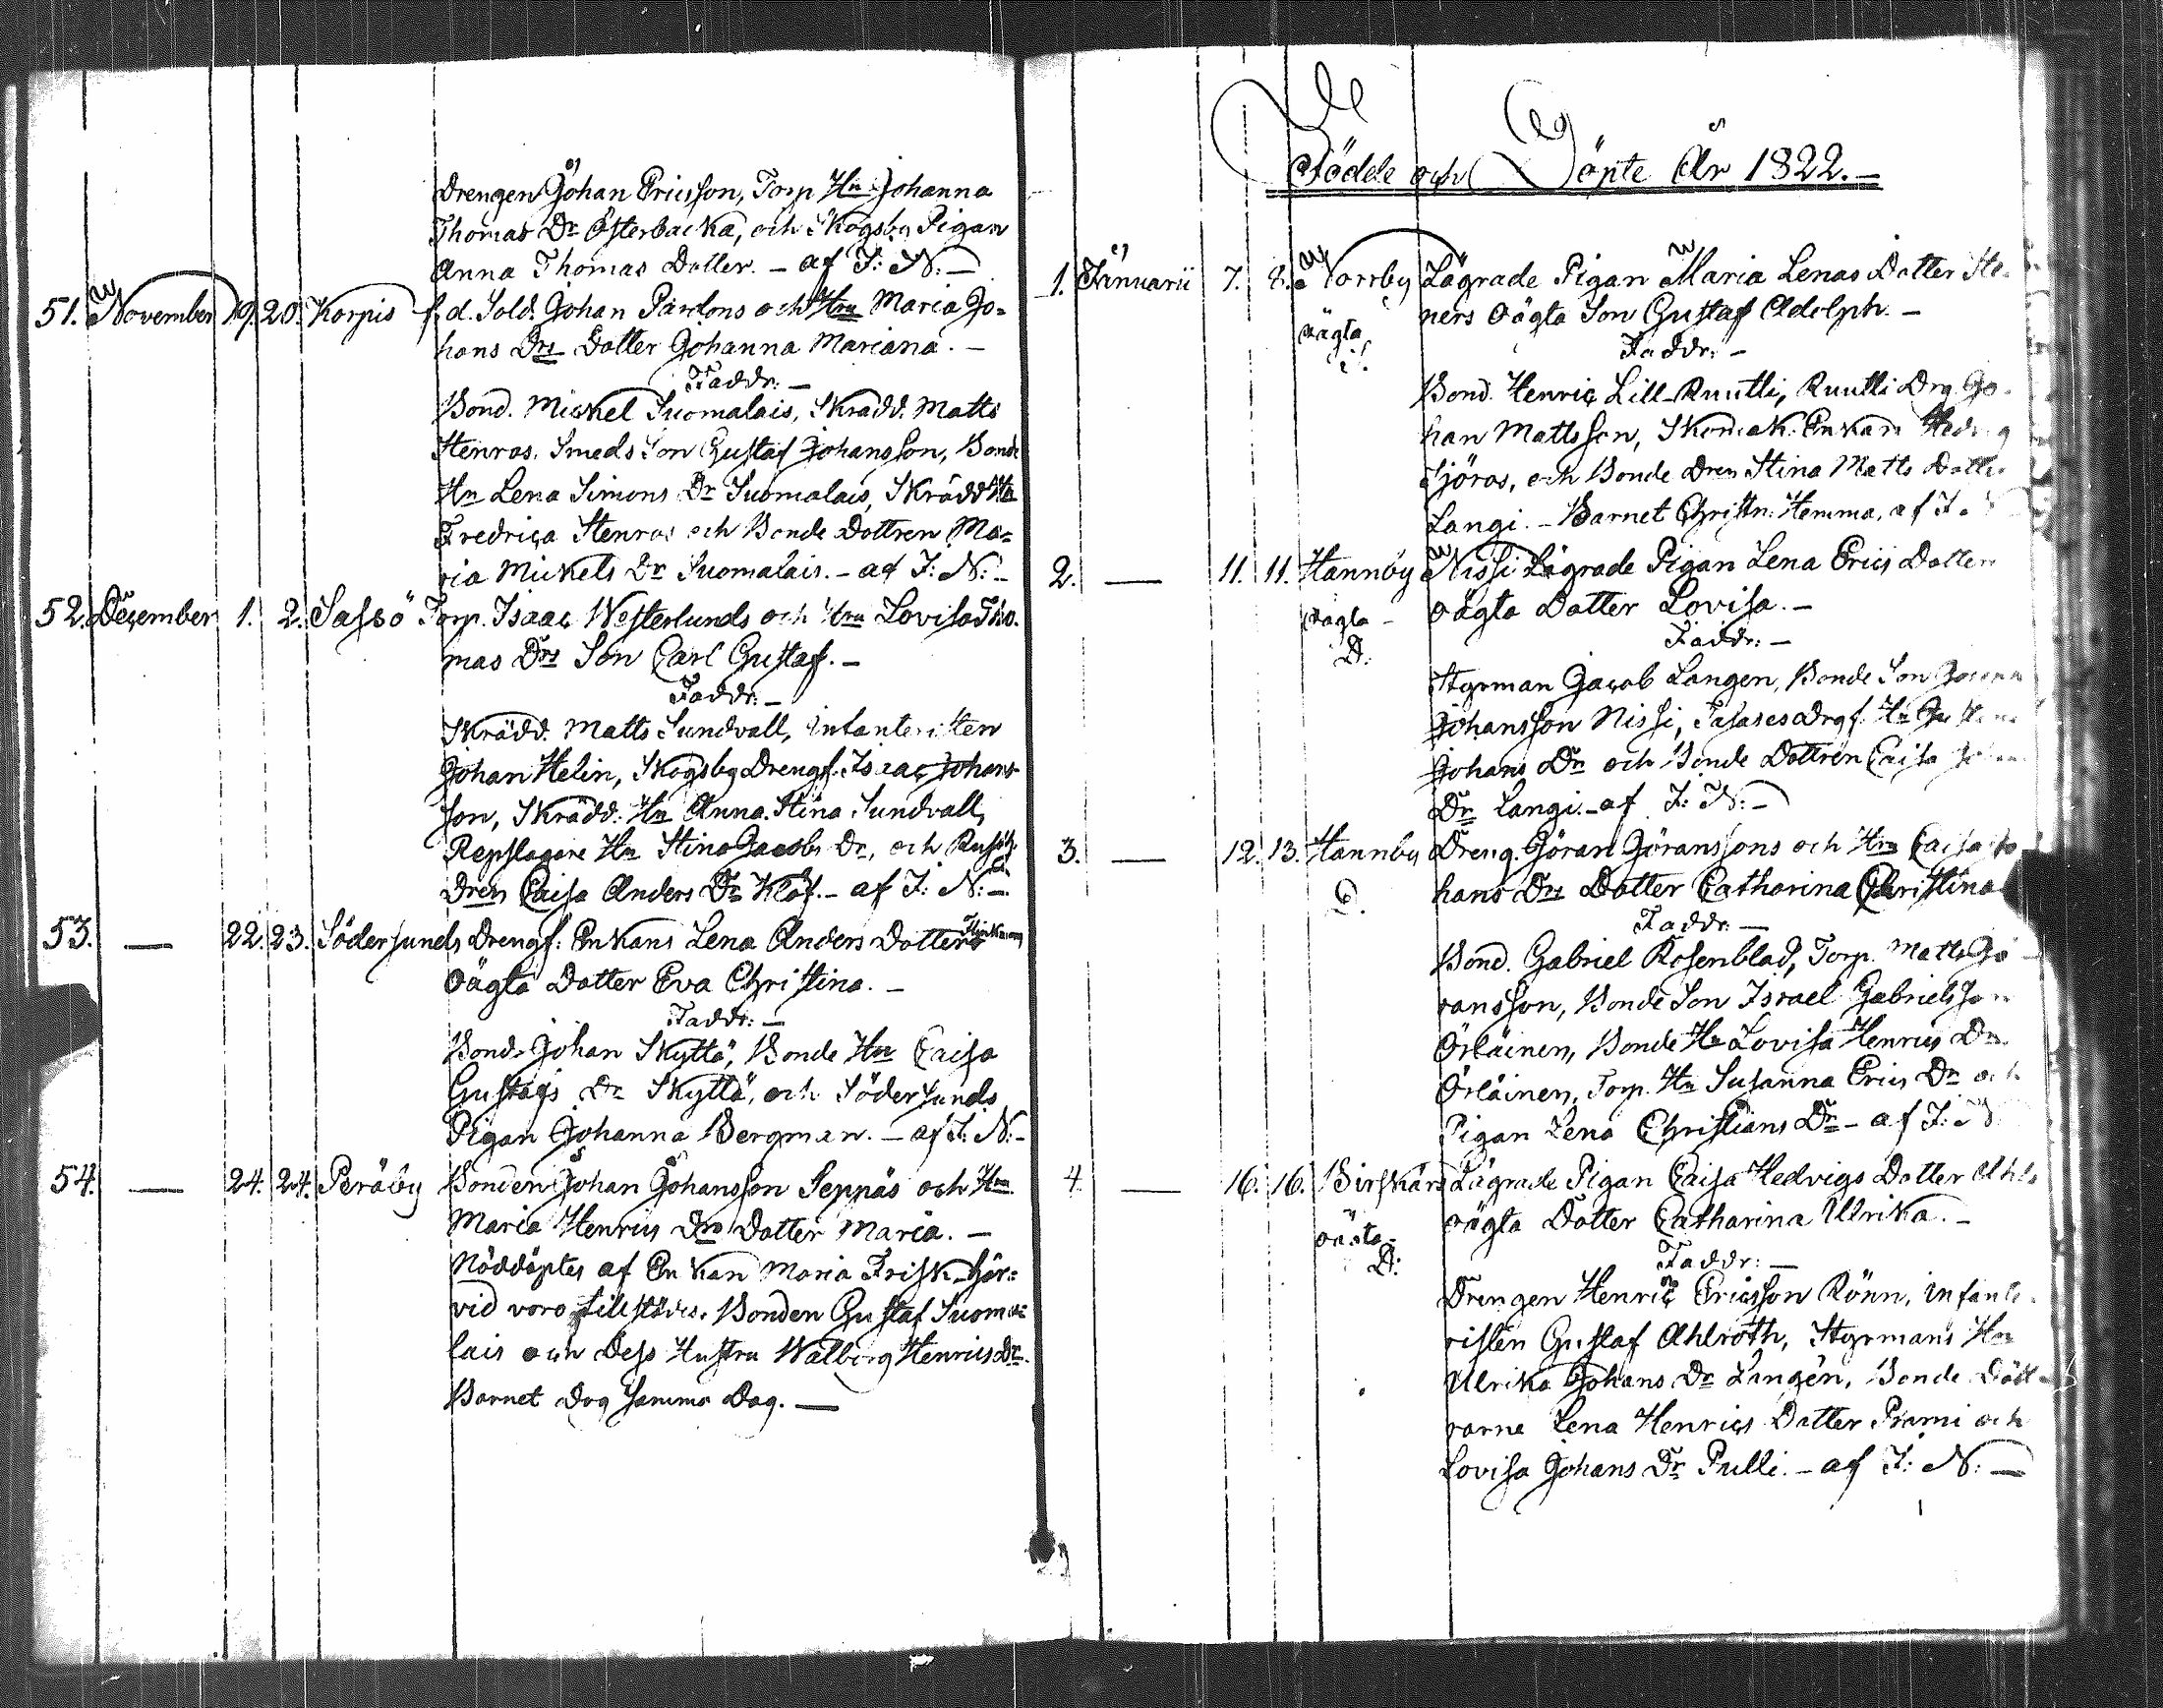 Drengen Johan Ericsson, Torp. Hn Johanna
Thomas Dr Österbacka, och Skogsby Pigan
Anna Thomas Dotter. – af I: N: –
51. November 19. 20. Korpis f. d. Sold. Johan Pardons och Hru Maria Jo=
hans Drs Dotter Johanna Mariana. –
Faddr: –
Bond. Mickel Suomalais, Skrädd. Matts
Stenros, Smeds Son Gustaf Johansson, Bonde
Hn Lena Simons Dr Suomalais, Skrädd Hn
Fredrica Stenros och Bonde Dottren Ma=
ria Mickels Dr Suomalais. – af I: N: –
52. December 1. 2. Sassö Torp. Isaac Westerlunds och Hru Lovisa Tho=
mas Drs Son Carl Gustaf. –
Faddr: –
Skrädd. Matts Sundvall, Infanteristen
Johan Helin, Skogsby Drengf. Isaac Johans=
son, Skrädd. Hn Anna Stina Sundvall,
Repslagare Hn Stina Jacobs Dr, och
Dren Caisa Anders Dr Klåf. – af I: N: –
53. — 22. 23. Södersunds Drengf. Enkans Lena Anders Dotters
Oägta Dotter Eva Christina. –
Faddr: –
Bond. Johan Skyttä, Bonde Hn Caisa
Gustafs Dr Skyttä, och Södersunds
Pigan Johanna Bergman. – af I: N: –
54. — 24. 24. Peräby Bonden Johan Johansson Seppäs och Hru
Maria Henrics Drs Dotter Maria. –
Nöddöptes af Enkan Maria Frisk – här=
vid voro tillstädes. Bonden Gustaf Suoma=
lais och Dess Hustru Walborg Henrics Dr.
Barnet dog samma Dag. —
Födde och Döpte År 1822. –
1. Januarii 7. 8. Norrby Lägrade Pigan Maria Lenas Dotter Ste=
ners Oägta Son Gustaf Adolph. –
oägta
Faddr: –
Bond. Henric Lill-Ruutli, Ruutli Drg. Jo=
han Mattsson, Skomak. Enkan Hedvig
Sjöros, och Bonde Dren Stina Matts Dotter
Langi. – Barnet Christn: Hemma, af I.
2. — 11. 11. Hannby Nissi Lägrade Pigan Lena Erics Dotters
oägta – Oägta Dotter Lovisa. –
D:
Faddr: –
Styrman Jacob Langen, Bonde Son
Johansson Nissi, Hn
Johans Dr och Bonde Dottren Caisa
Dr Langi. – af I: N: –
3. — 12. 13. Hannby Dreng. Göran Göranssons och Hru Caisa Jo
D. hans Drs Dotter Catharina Christina
Faddr: –
Bond. Gabriel Rosenblad, Torp. Matts Gö=
ransson, Bonde Son Israel Gabrielsson
Örläinen, Bonde Hn Lovisa Henrics Dr
Örläinen, Torp. Hn Susanna Erics Dr och
Pigan Lena Christians Dr – af I: N
4. — 16. 16. Birskärs Lägrade Pigan Caisa Hedvigs Dotter Ahls
oägta Dotter Catharina Ulrika. –
oägta –
D:
Faddr: –
Drengen Henric Ericsson Rönn, Infante=
risten Gustaf Ahlroth, Styrmans Hn
Ulrika Johans Dr Langen, Bonde Dött=
rarne Lena Henrics Dotter Prami och
Lovisa Johans Dr Pulli. – af I: N: —